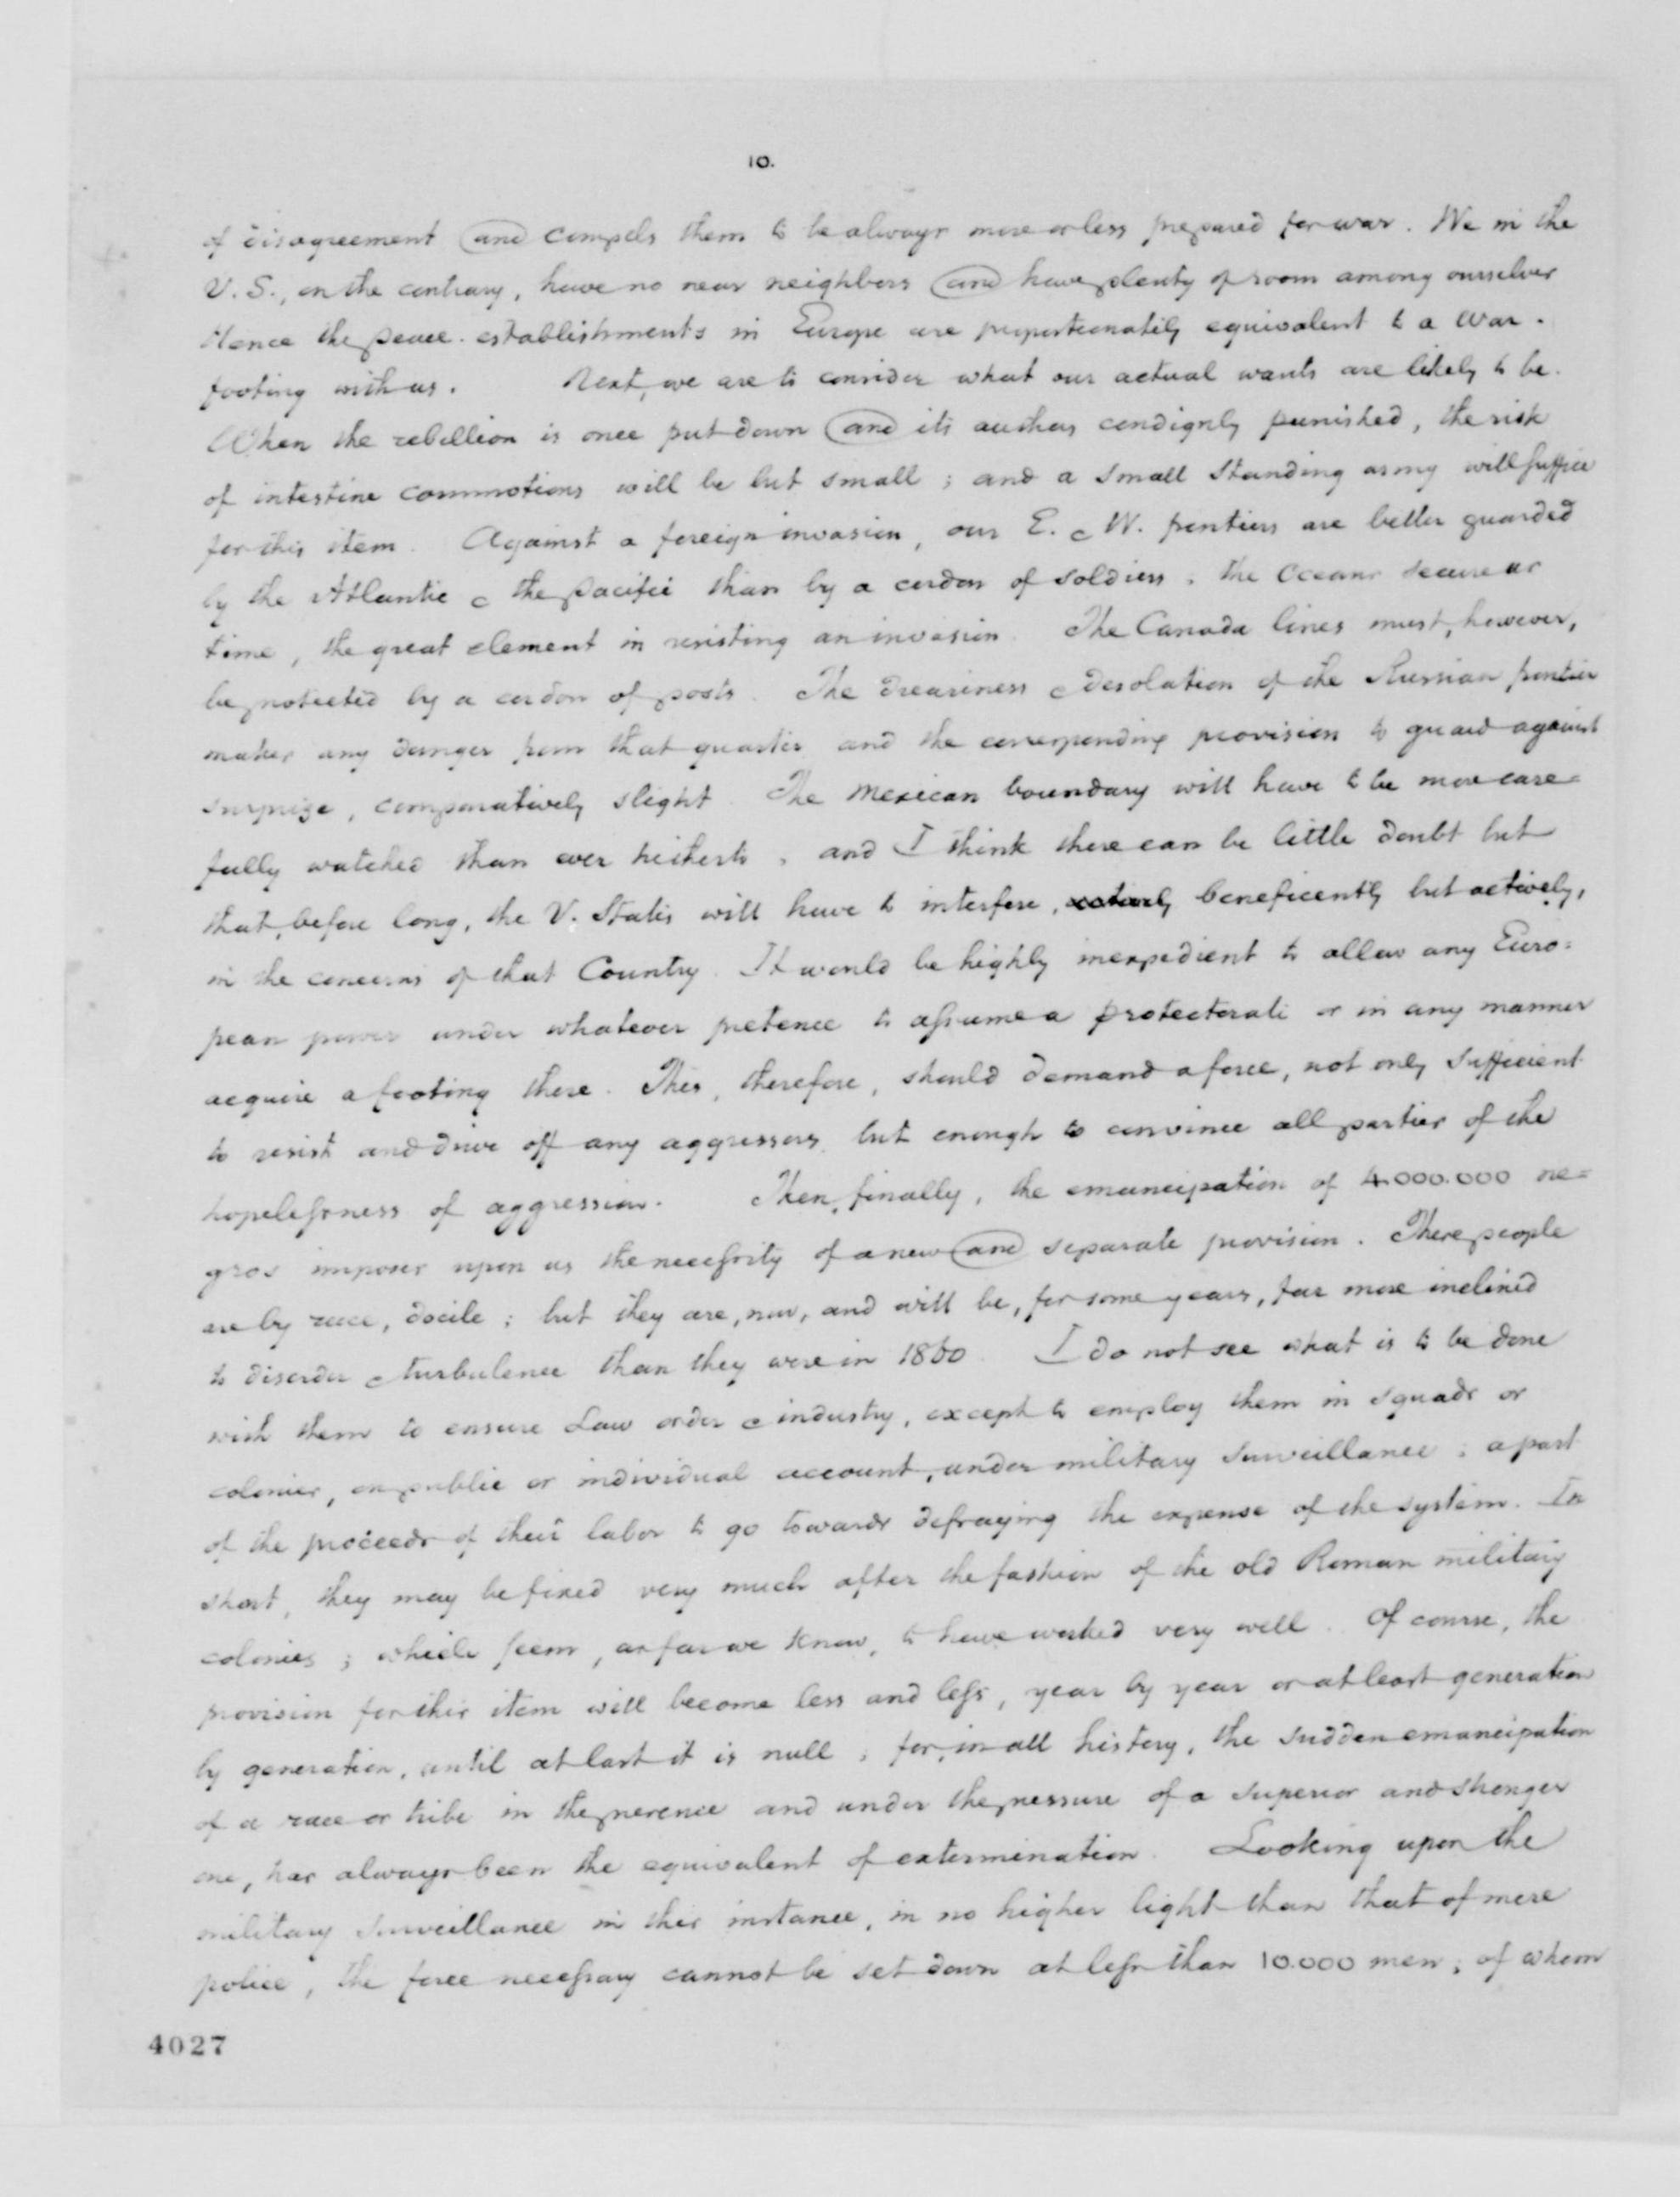 10.
of disagreement and compels them to be always more or less prepared for war. We in the
U.S., on the contrary, have no near neighbors and have plenty of room among ourselves
Hence the peace establishments in Europe are proportionately equivalent to a war-
footing with us. Next, we are to consider what our actual wants are likely to be.
When the rebellion is once put down and its authors condignly punished, the risk
of intestine commotions will be but small; and a small standing army will suffice
for this item. Against a foreign invasion, our E. & W. frontiers are better guarded
by the Atlantic & the Pacific than by a cordon of soldiers; the Oceans secure us
time, the great element in resisting an invasion. The Canada lines must, however,
be protected by a cordon of posts. The dreariness & desolation of the Russian frontier
makes any danger from that quarter and the corresponding provision to guard against
surprize, comparatively slight. The Mexican boundary will have to be more care=
fully watched than ever hitherto; and I think there can be little doubt but
that, before long, the U. States will have to interfere, beneficently but actively,
in the concerns of that Country. It would be highly inexpedient to allow any Euro=
pean power under whatever pretence to assume a protectorate or in any manner
acquire a footing there. This, therefore, should demand a force, not only sufficient
to resist and drive off any aggressors, but enough to convince all parties of the
hopelessness of aggression. Then, finally, the emancipation of 4.000.000 ne=
gros imposes upon us the necessity of a new and separate provision. These people
are by race, docile; but they are, now, and will be, for some years, far more inclined
to disorder & turbulence than they were in 1860. I do not see what is to be done
with them to ensure Law order & industry, except to employ them in squads or
colonies, on public or individual account, under military surveillance; a part
of the proceeds of their labor to go towards defraying the expense of the system. In
short, they may be fixed very much after the fashion of the old Roman military
colonies; which seem, as far we know, to have worked very well. Of course, the
provision for this item will become less and less, year by year or at least generation
by generation, until at last it is null; for, in all history, the sudden emancipation
of a race or tribe in the presence and under the pressure of a superior and stronger
one, has always been the equivalent of extermination. Looking upon the
military surveillance in this instance, in no higher light than that of mere
police, the force necessary cannot be set down at less than 10.000 men; of whom
4027